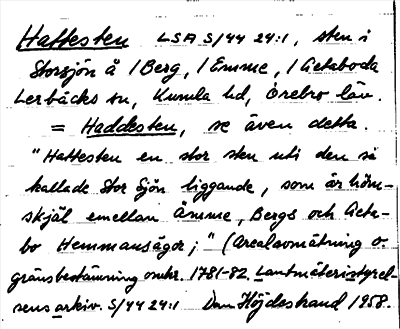 Hattesten LSA S/44 24:1, sten i
Storsjön å /Berg, /Emme, /Aetaboda
Lerbäcks sn, Kumla hd, Örebro län.
= Haddesten, se även detta.
"Hattesten en stor sten uti den så
kallade Stor Sjön liggande, som är hörn-
skjäl emellan Ämme, Bergs och Aeta-
bo Hemmansägor;" (Arealavmätning o.
gränsbestämning omkr. 1781-82. Lantmäteristyrel-
sens arkiv. S/44 24:1 Dan Höjdestrand 1958.